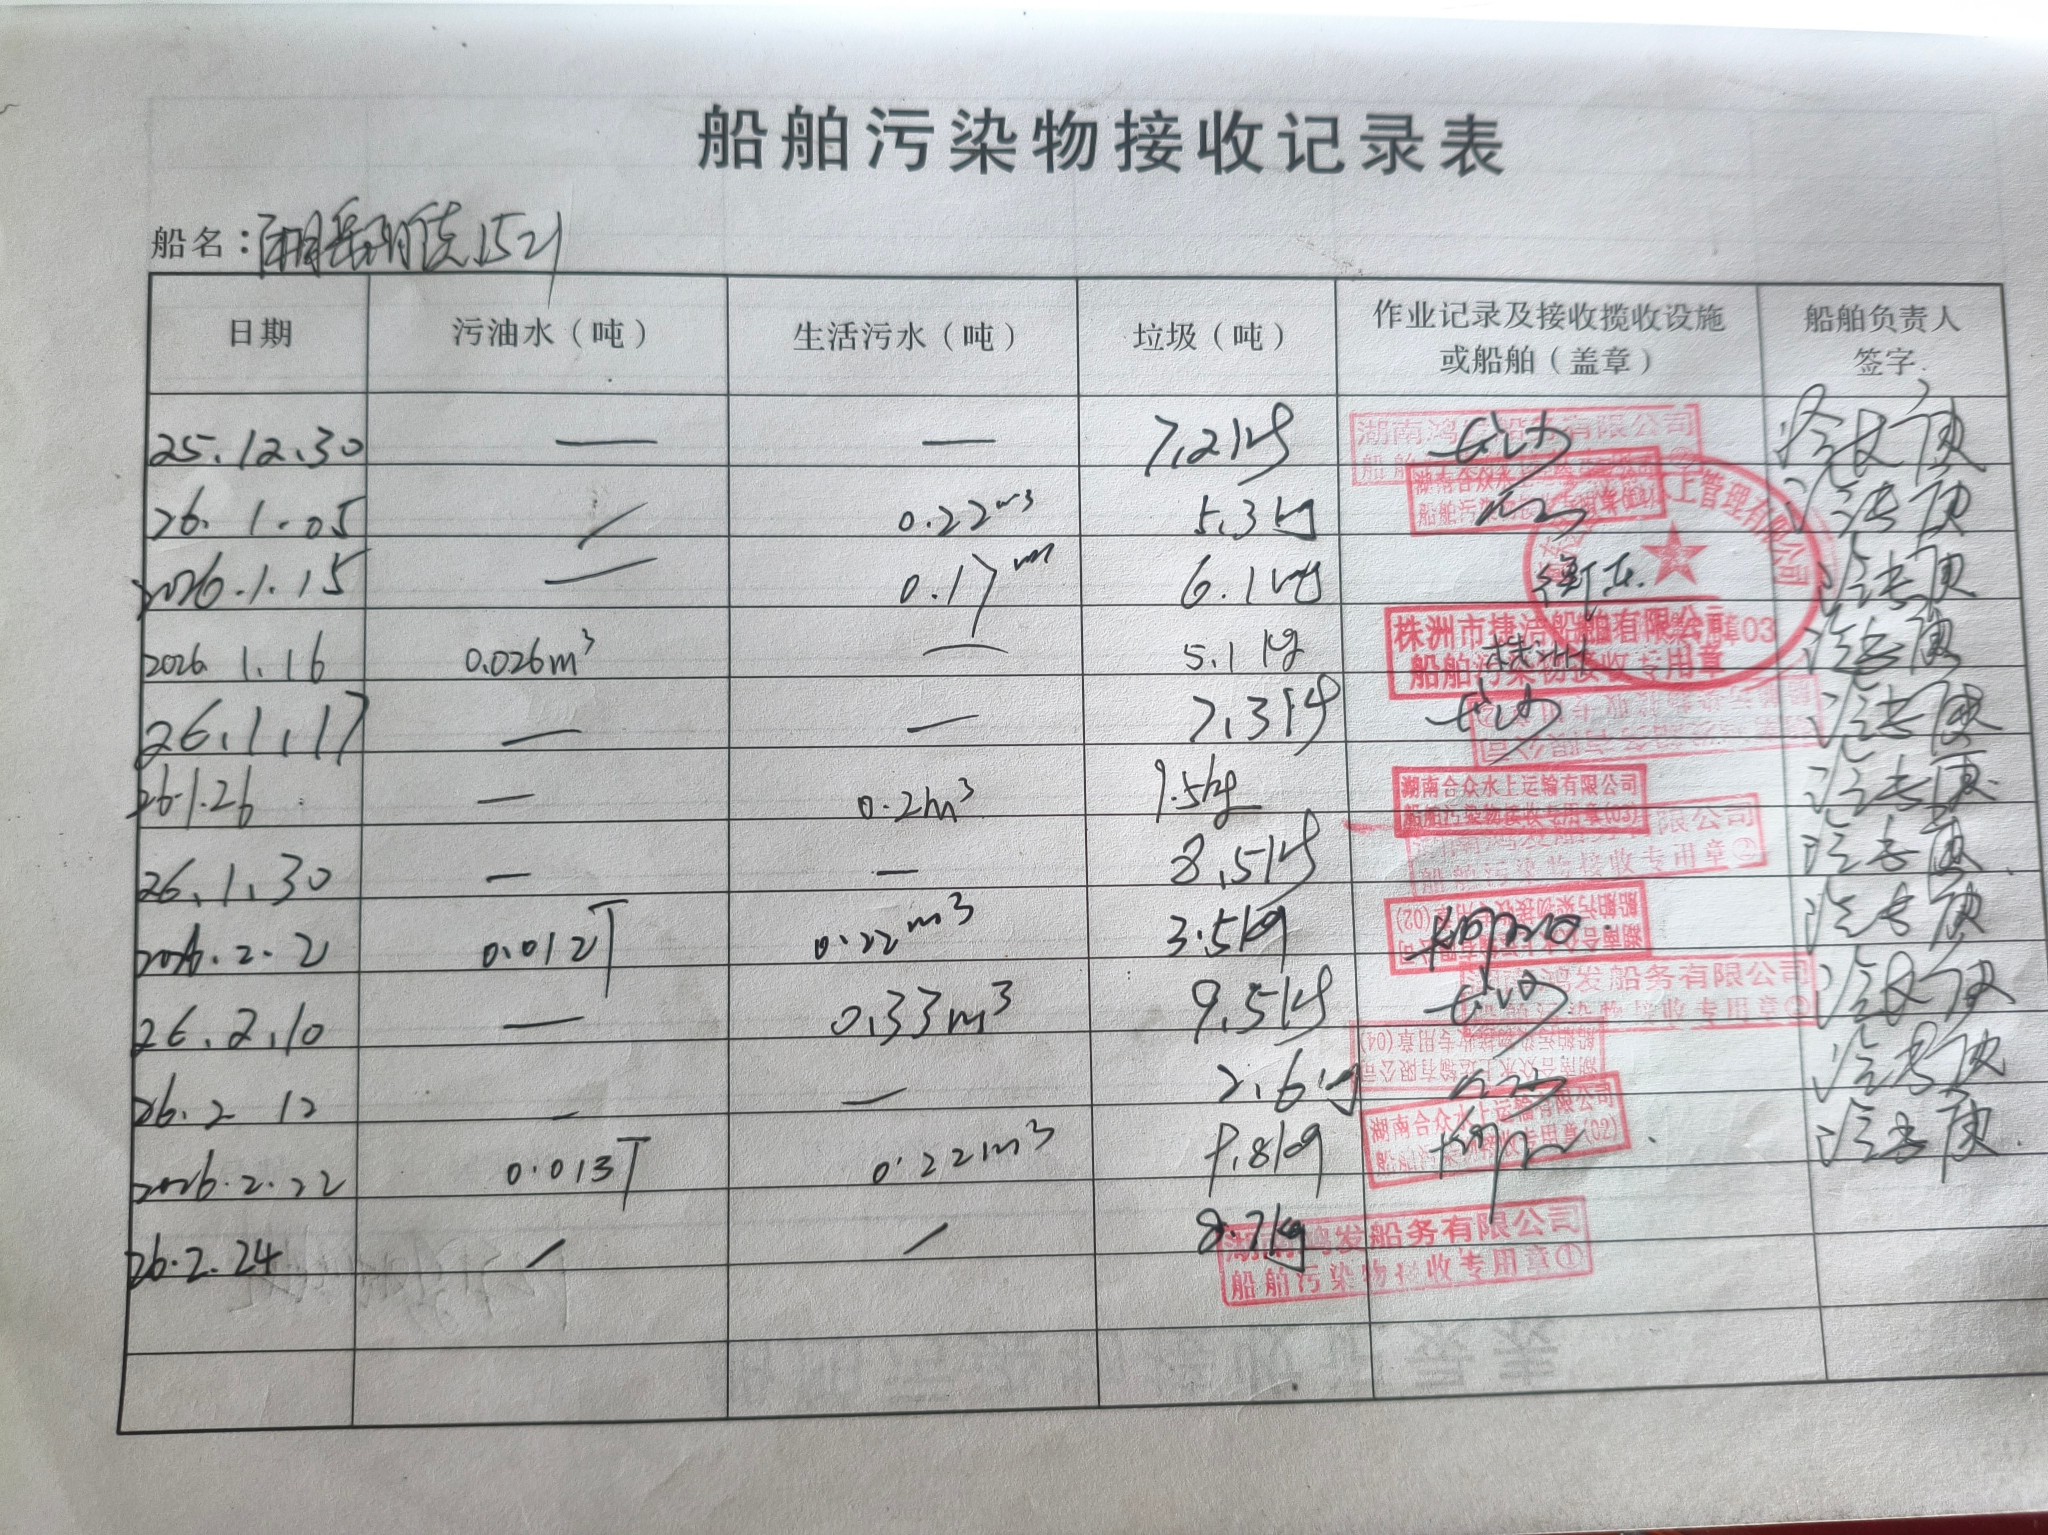 船舶污染物接收记录表
船名：湘岳阳货1521
日期 污油水（吨） 生活污水（吨） 垃圾（吨） 作业记录及接收揽收设施或船舶（盖章） 船舶负责人签字
25.12.30 — — 7.2kg 长沙
湖南鸿 船务有限公司
26.1.05 / 0.22m³ 5.3kg
湖南合众水
2026.1.15 — 0.17m³ 6.1kg 衡东
上管理有限公司
2026.1.16 0.026m³ — 5.1kg 株洲
株洲市捷洁船舶有限公司
船舶污染物接收专用章
03
26.1.17 — — 7.3kg 长沙
26.1.26 — 0.2m³ 9.5kg
湖南合众水上运输有限公司
船舶污染物接收专用章(03)
26.1.30 — — 8.5kg
限公司
船舶污染物接收专用章②
2026.2.2 0.012T 0.22m³ 3.5kg
船舶污染物接收专用章(02)
26.2.10 — 0.33m³ 9.5kg 长沙
鸿发船务有限公司
船舶污染物接收专用章
26.2.12 — — 2.6kg
船舶污染物接收专用章(04)
湖南合众水上运输有限公司
2026.2.22 0.013T 0.22m³ 9.8kg
湖南合众水上运输有限公司
船舶污染物接收专用章(02)
26.2.24 / / 8.7kg
湖南鸿发船务有限公司
船舶污染物接收专用章①